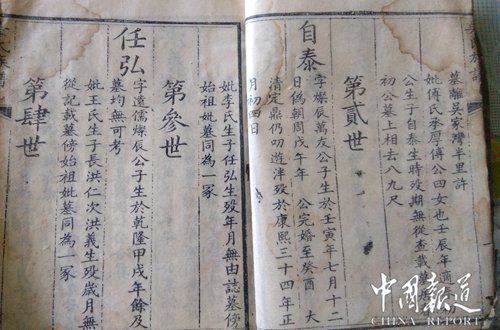 墓離吳家灣半里許
妣傅氏季厚傅公四女也壬辰年適
公生子自泰生時歿期無從查載墓
初公墓上相去八九尺
第貳世
自泰
字燦辰萬友公子生於壬寅年七月十二
日偽朝周戊午年 公完婚至癸酉 大
清定鼎仍叨遊泮歿於康熙三十四年正
月初四日
妣李氏生子任弘生歿年月無由誌墓傍
始祖妣墓同為一冢
第參世
任弘
字遠儒燦辰公子生於乾隆甲戌年餘及
墓均無可考
妣王氏生子長洪仁次洪義生歿歲月無
從記載墓傍始祖妣墓同為一冢
第肆世
中國報道
CHINA REPORT